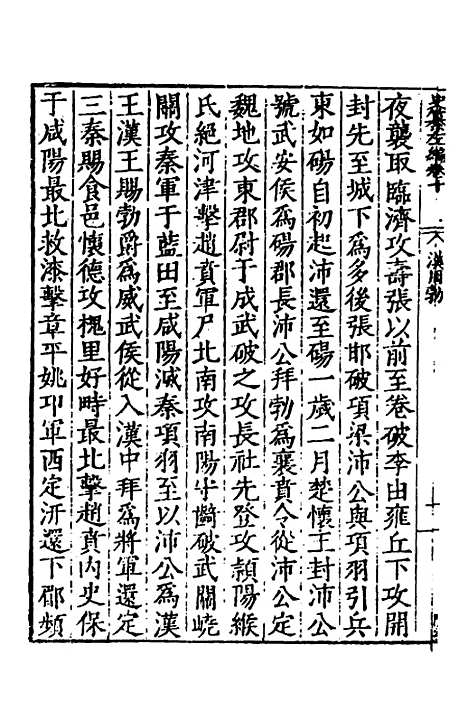 史纂左編卷十 八 漢周勃
夜襲取臨濟攻壽張以前至卷破李由雍丘下攻開
封先至城下爲多後張邯破項梁沛公與項羽引兵
東如碭自初起沛還至碭一歲二月楚懷王封沛公
號武安侯爲碭郡長沛公拜勃爲襄賁令從沛公定
魏地攻東郡尉于成武破之攻長社先登攻潁陽緱
氏絕河津擊趙賁軍尸北南攻南陽齮破武關嶢
關攻秦軍于藍田至咸陽滅秦項羽至以沛公爲漢
王漢王賜勃爵爲威武侯從入漢中拜爲將軍還定
三秦賜食邑懷德攻槐里好畤最北擊趙賁內史保
于咸陽最北救漆擊章平姚卭軍西定汧還下郿頻